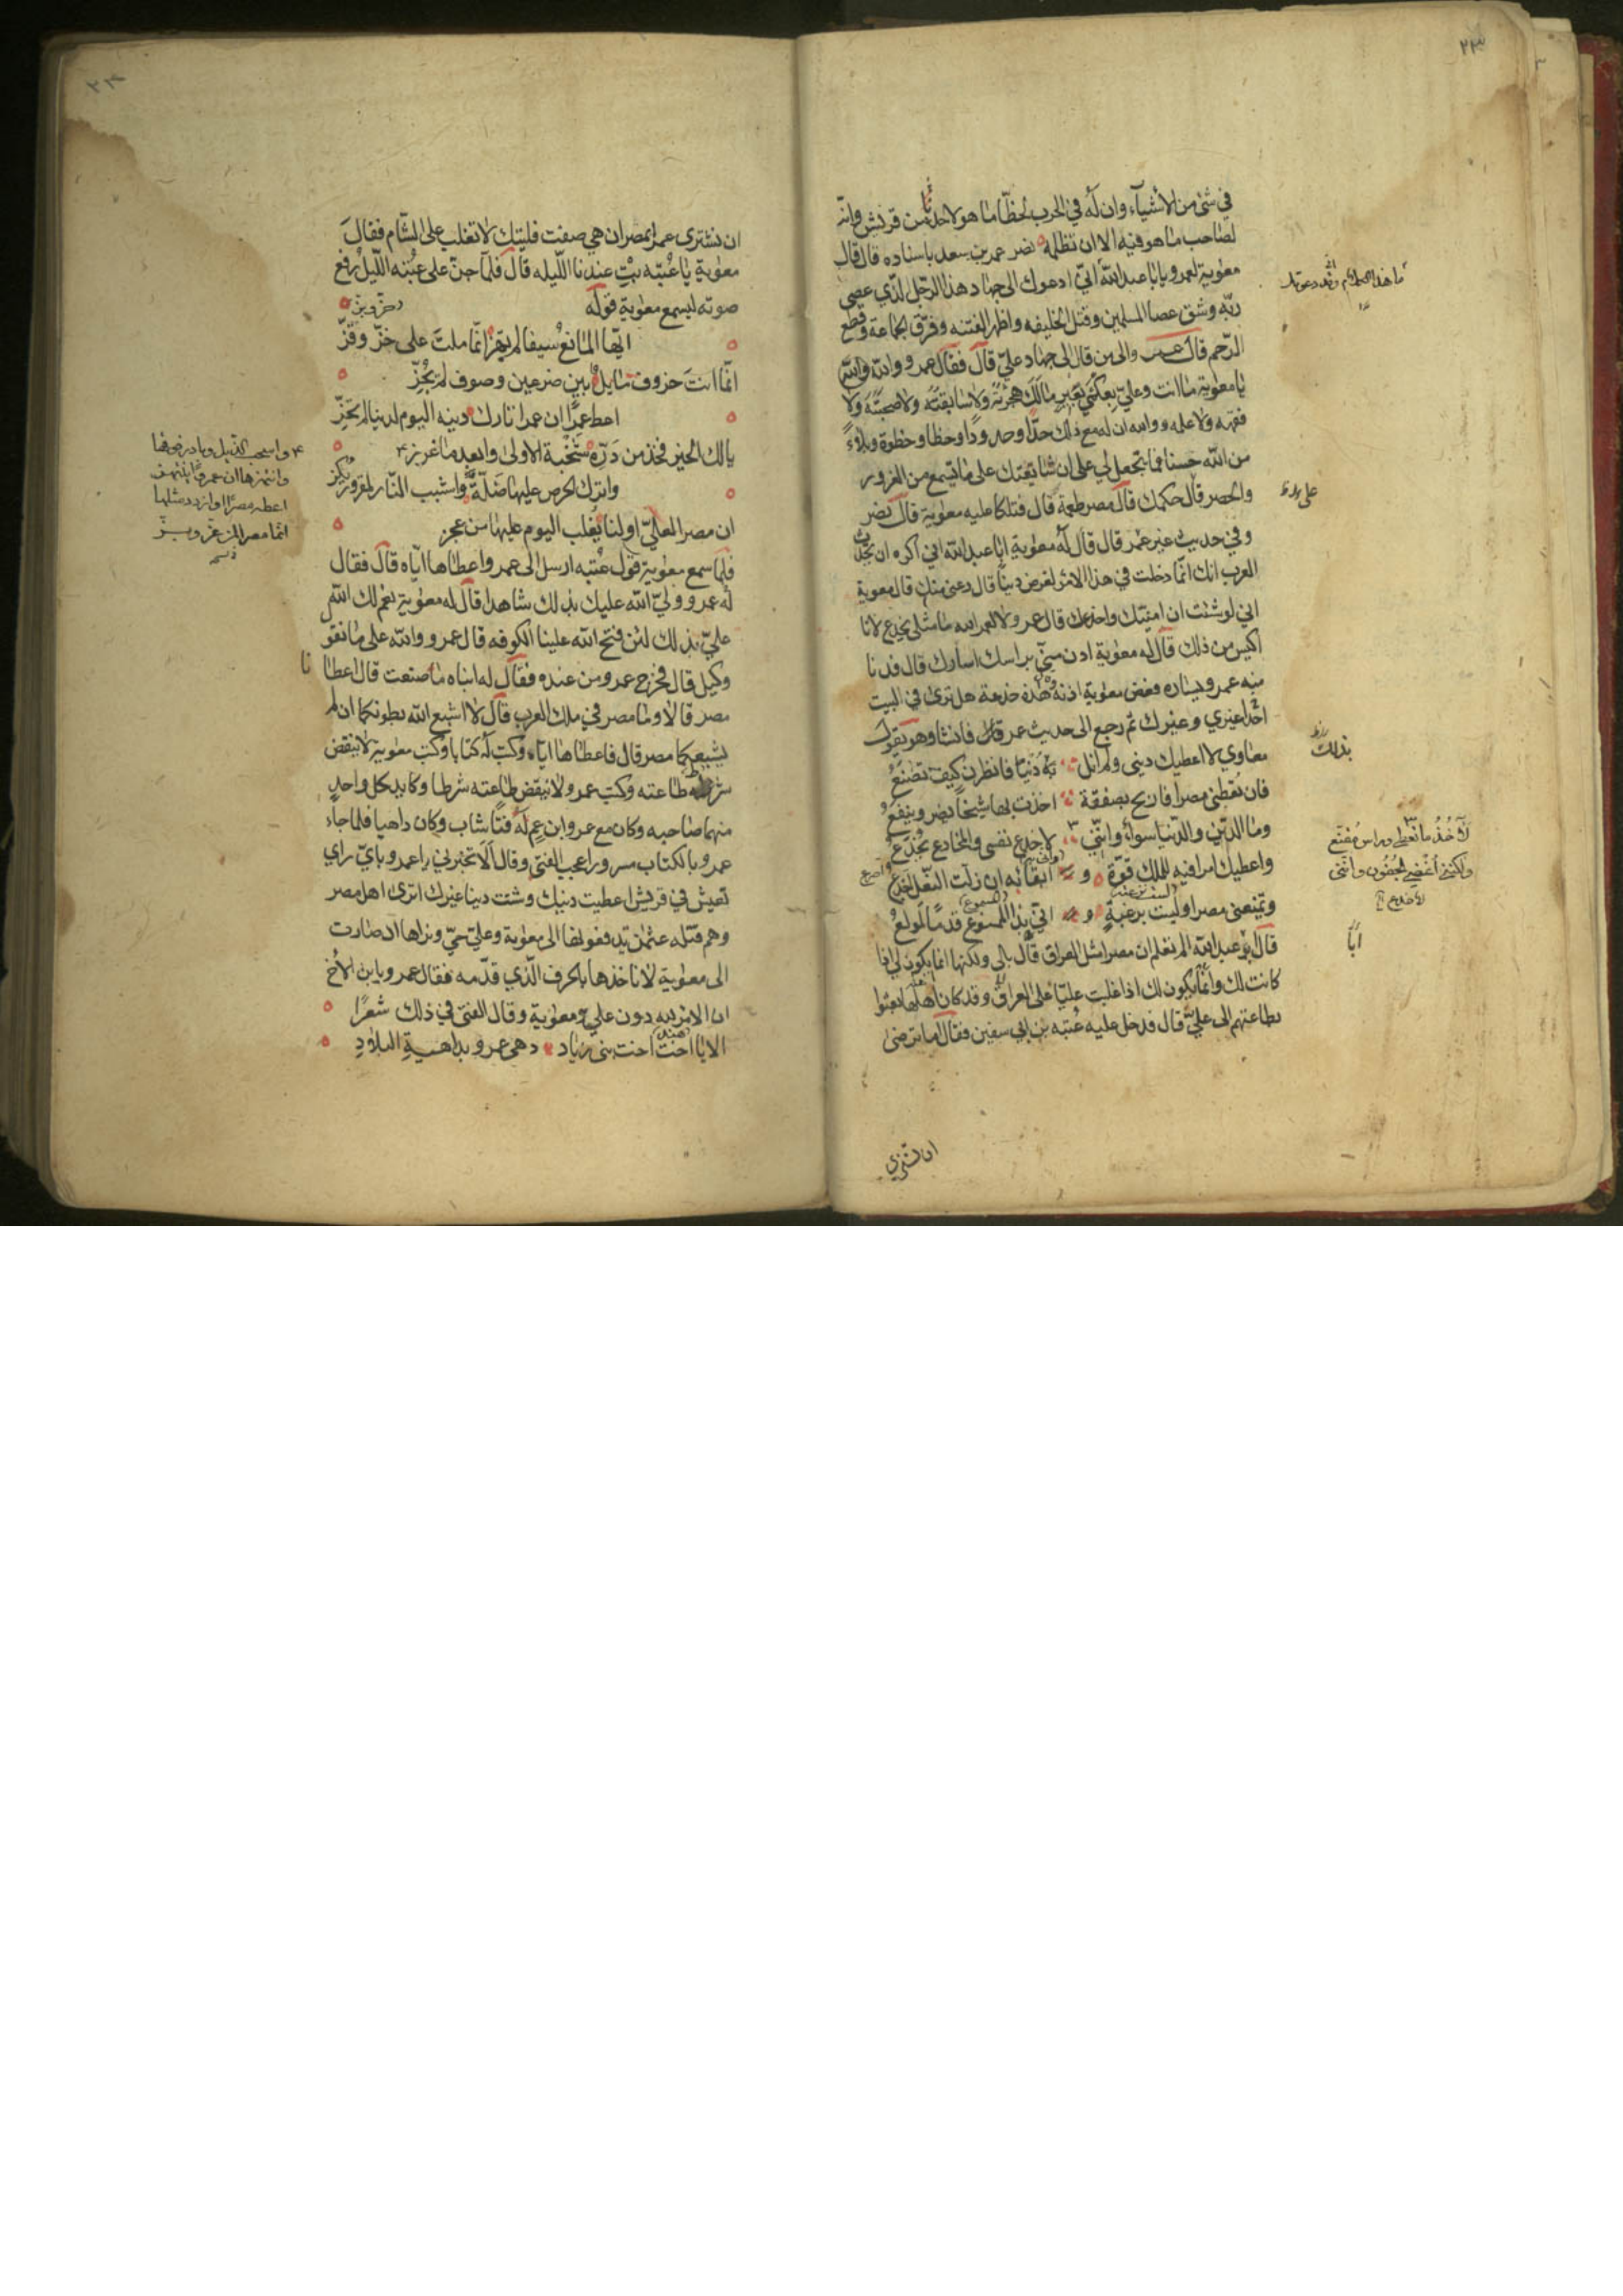 ٢٣
في شئ من الأشياء وان له في الحرب لحظا ما هو لاحد من قريش وانه
لصاحب ما هو فيه الا ان تظلمه نصر عمر بن سعد باسناده قال قال
معوية لعمرو يا ابا عبد الله اني ادعوك الى جهاد هذا الرجل الذي عصى
ربه وشق عصا المسلمين وقتل الخليفه واظهر الفتنه وفرق الجماعة وقطع
الرحم قال عمرو والى من قال الى جهاد علي قال فقال عمرو والله
يا معوية ما انت وعلي بعكمي بعير مالك هجرته ولا سابقته ولا صحبته ولا
فقهه ولا علمه ووالله ان له مع ذلك حدا وحدودا وحظا وحظوة وبلاء
من الله حسنا فما تجعل لي على ان شايعتك على ما تسمع من الغرور
والخصر قال حكمك قال مصر طعمة قال فتلكا عليه معوية قال نصر
وفي حديث غير عمر قال قال له معوية ابا عبد الله اني اكره ان تحدث
العرب انك انما دخلت في هذا الامر لغرض دنيا قال دعني منك قال معوية
اني لو شئت ان امنيك واخدعك قال عمرو لا لعمر الله ما مثلي يخدع لانا
اكيس من ذلك قال له معوية ادن مني براسك اسارك قال فدنا
منه عمرو يساره فعض معوية اذنه وهذه خدعة هل ترى في البيت
احدا غيري وغيرك ثم رجع الى حديث عمر قال فانشا وهو يقول
معاوي لا اعطيك ديني ولم انل به دنيا فانظرن كيف تصنع
فان تعطني مصرا فاربح بصفقة اخذت بها شيخا يضر وينفع
وما الدين والدنيا سواء وانني لاخدع نفسي والمخادع يخدع
واعطيك امرا فيه للملك قوة و ابقا به ان زلت النعل اخدع
وتمنعني مصرا وليست برغبة و اني بذا الممنوع قدما لمولع
قال ابو عبد الله الم تعلم ان مصرا مثل العراق قال بلى ولكنها انما يكون لي اذا
كانت لك وانما يكون لك اذا غلبت عليا على العراق وقد كان اهلها بعثوا
بطاعتهم الى علي قال فدخل عليه عتبه بن ابي سفين فقال اما ترضى
بذلك
لآخذ ما تعطي وراس مقنع
ولكنني اغضي الجفون وانني
لاخدع
ابا
ان تشتري
ان تشتري عمرا بمصر ان هي صفت فليتك لا تغلب على الشام فقال
معوية يا عتبه بت عندنا الليله قال فلما جن على عتبه الليل رفع
صوته ليسمع معوية قوله
ايها المانع سيفا لم يهز انما ملت على خز وقز
انما انت خروف مايل بين ضرعين وصوف لم يجز
اعط عمرا ان عمرا تارك دينه اليوم لدنيا لم تحز
يا لك الخير فخذ من دره شخبة الاولى وابعد ما غرز
واترك الحرص عليها ضلة واشبب النار لمقرور يكز
ان مصرا لعلي او لنا يغلب اليوم عليها من عجز
واسحب الذيل وبادر فوقها
وانتهزها ان عمرا ينتهز
اعطه مصرا وزده مثلها
انما مصر لمن عز وبز
فلما سمع معوية قول عتبه ارسل الى عمرو واعطاها اياه قال فقال
له عمرو ولي الله عليك بذلك شاهد قال له معوية نعم لك الله
علي بذلك لئن فتح الله علينا الكوفه قال عمرو والله على ما نقو
وكيل قال فخرج عمرو من عنده فقال له ابناه ما صنعت قال اعطانا
مصر قالا وما مصر في ملك العرب قال لا اشبع الله بطونكما ان لم
يشبعكما مصر قال فاعطاها اياه وكتب له كتابا وكتب معوية لا ينقض
شرط طاعته وكتب عمرو ولا تنقض طاعته شرطا وكايد كل واحد
منهما صاحبه وكان مع عمرو ابن عم له فتا شاب وكان داهيا فلما جاء
عمرو بالكتاب مسرورا عجب الفتى وقال الا تخبرني يا عمرو باي راي
تعيش في قريش اعطيت دينك ومنيت دنيا غيرك اترى اهل مصر
وهم قتله عثمن يدفعونها الى معوية وعلي حي وتراها ان صارت
الى معوية لا ياخذها بالحرف الذي قدمه فقال عمرو يا بن الاخ
ان الامر لله دون علي ومعوية وقال الفتى في ذلك شعرا
الا يا هند اخت بني زياد دهي عمرو بداهية البلاد